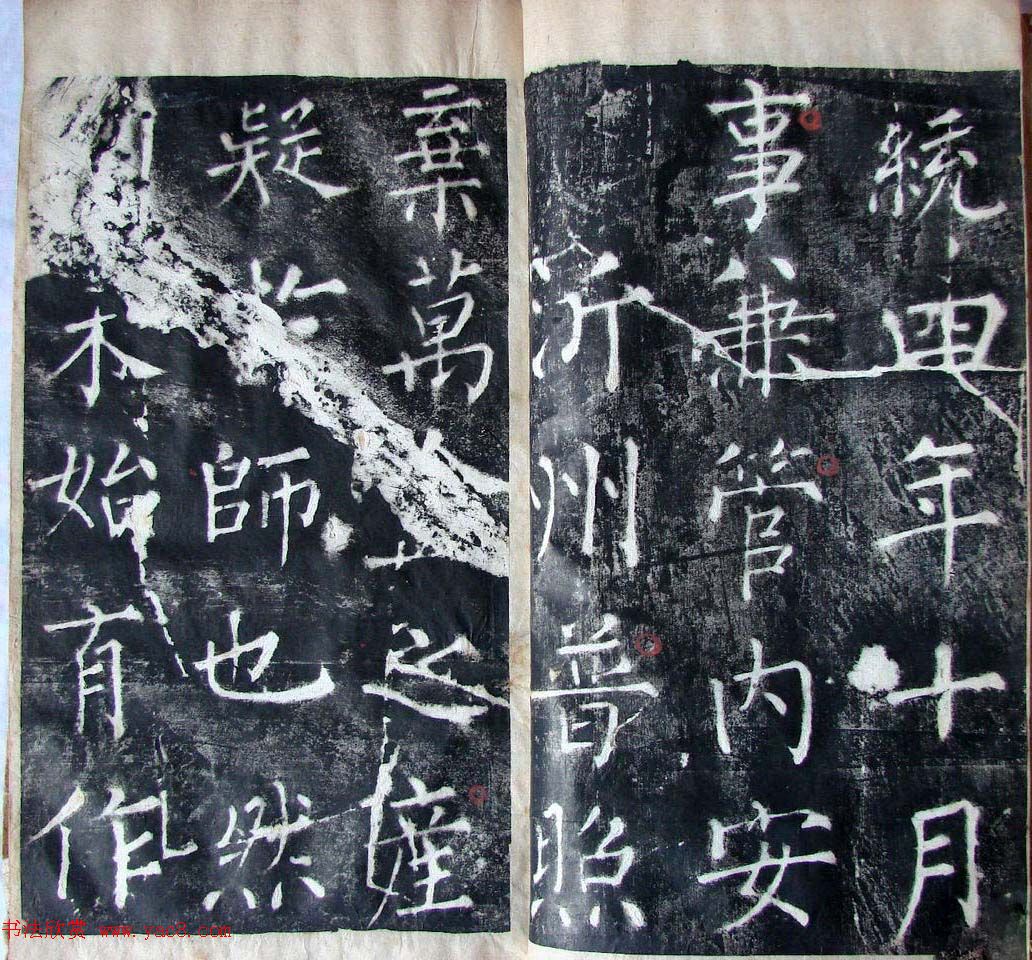 統四年十月
事兼管內安
沂州普照
棄萬之
疑於師也然
木始有作
书法欣赏 www.yac8.com